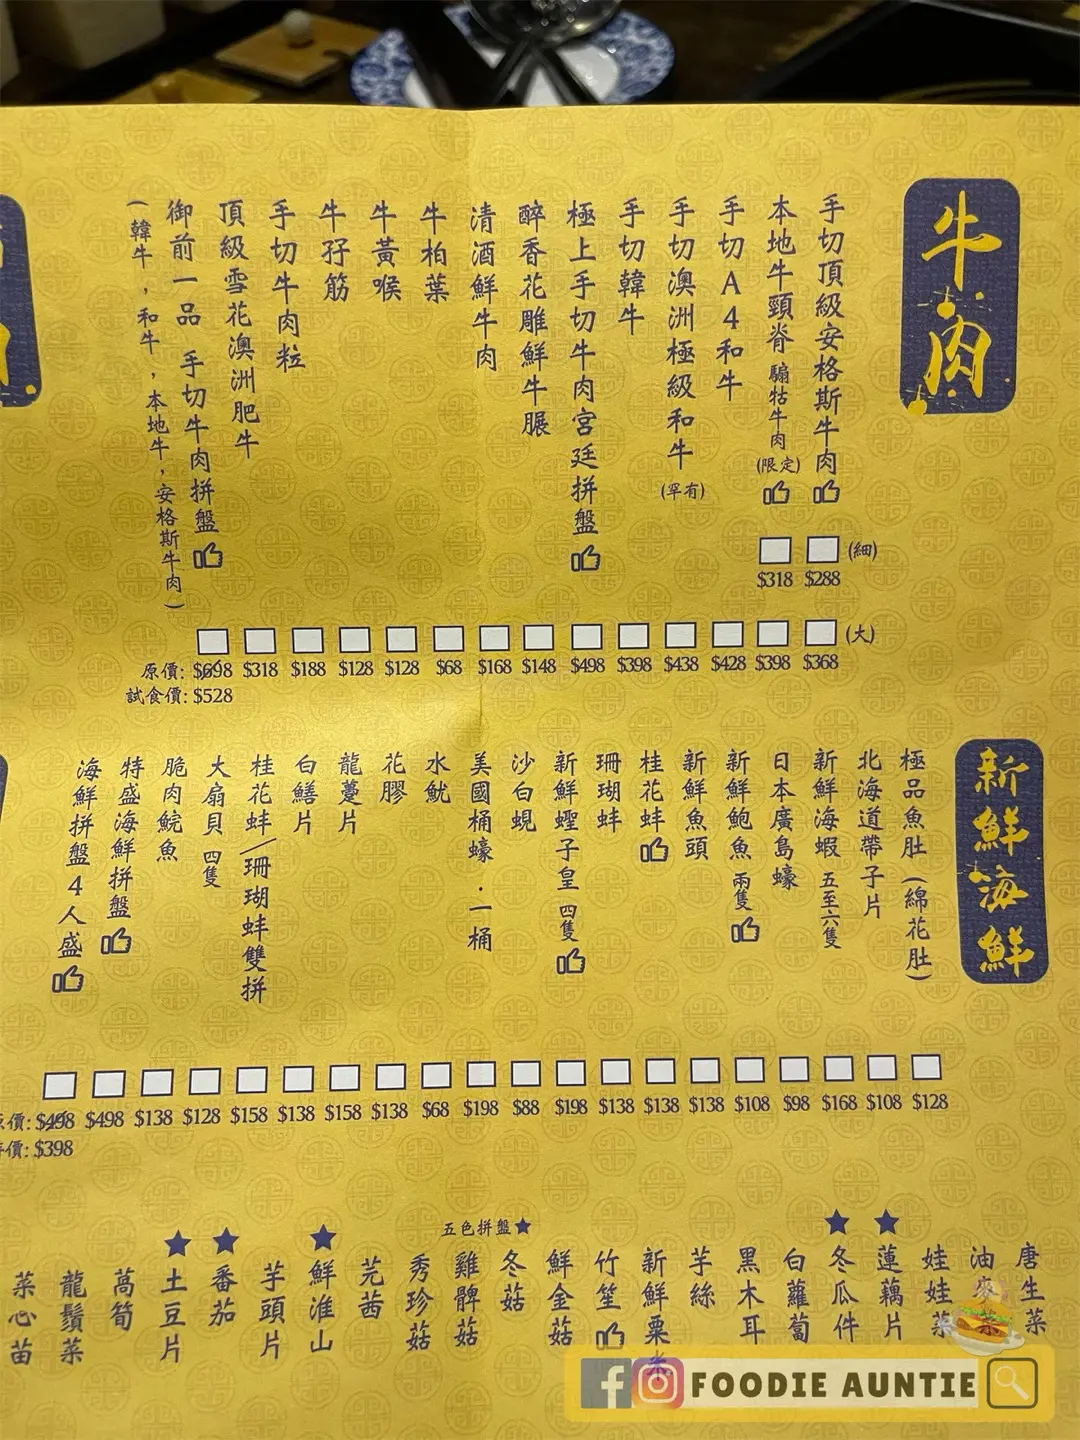 牛肉
手切頂級安格斯牛肉
本地牛頸脊 騸牯牛肉 (限定)
手切A4和牛
手切澳洲極級和牛 (罕有)
手切韓牛
極上手切牛肉宮廷拼盤
醉香花雕鮮牛𦟌
清酒鮮牛肉
牛柏葉
牛黃喉
牛孖筋
手切牛肉粒
頂級雪花澳洲肥牛
御前一品 手切牛肉拼盤
(韓牛，和牛，本地牛，安格斯牛肉)
(細)
$318 $288
(大)
原價: $698 $318 $188 $128 $128 $68 $168 $148 $498 $398 $438 $428 $398 $368
試食價: $528
新鮮海鮮
極品魚肚 (綿花肚)
北海道帶子片
新鮮海蝦 五至六隻
日本廣島蠔
新鮮鮑魚 兩隻
新鮮魚頭
桂花蚌
珊瑚蚌
新鮮蟶子皇 四隻
沙白蜆
美國桶蠔．一桶
水魷
花膠
龍躉片
白鱔片
桂花蚌/珊瑚蚌雙拼
大扇貝 四隻
脆肉鯇魚
特盛海鮮拼盤
海鮮拼盤4人盛
價: $498 $498 $138 $128 $158 $138 $158 $138 $68 $198 $88 $198 $138 $138 $138 $108 $98 $168 $108 $128
價: $398
五色拼盤★
唐生菜
油麥
娃娃菜
蓮藕片
冬瓜件
白蘿蔔
黑木耳
芋絲
新鮮粟米
竹笙
鮮金菇
冬菇
雞髀菇
秀珍菇
芫茜
鮮淮山
芋頭片
番茄
土豆片
萵筍
龍鬚菜
菜心苗
FOODIE AUNTIE